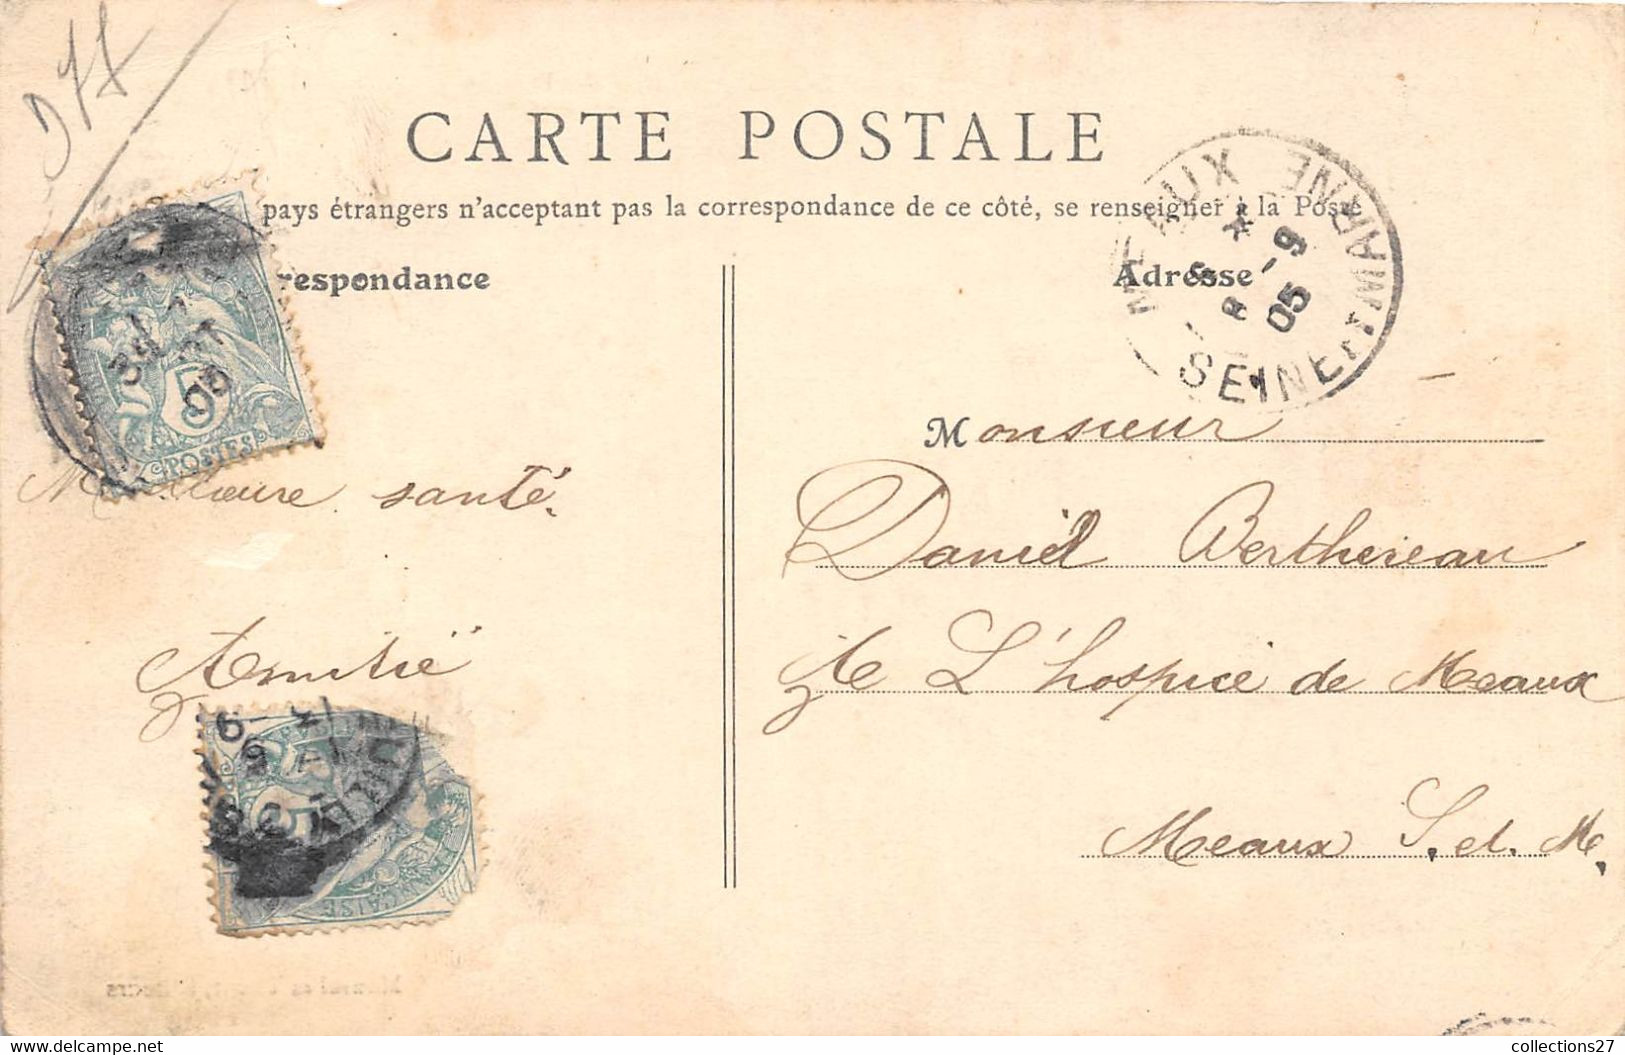 D77
CARTE POSTALE
pays étrangers n'acceptant pas la correspondance de ce côté, se renseigner à la Poste
respondance
Adresse
MEAUX
SEINE-ET-MARNE
05
5
05
POSTES
Monsieur
Meilleure santé.
Daniel Berthereau
Amitié
L'hospice de Meaux
Meaux S. et. M.
collections27